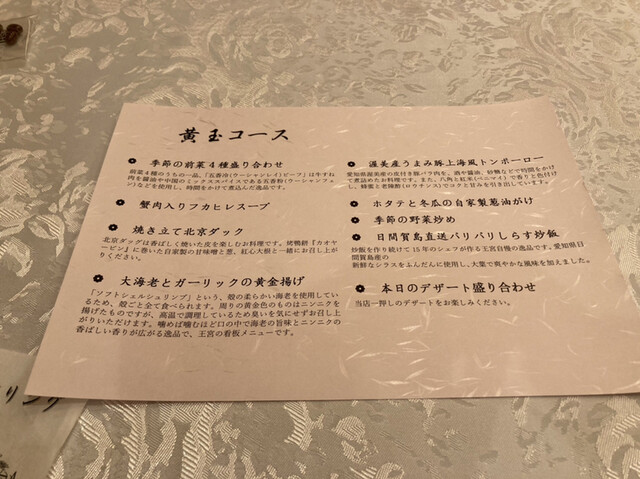 黄玉コース
季節の前菜4種盛り合わせ
前菜4種のうちの一品、「五香冷(ウーシャンレイ)ビーフ」は牛すね
肉を醤油や中国のミックススパイスである五香粉(ウーシャンフェ
ン)などを使用し、時間をかけて煮込んだ逸品です。
蟹肉入りフカヒレスープ
焼き立て北京ダック
北京ダックは香ばしく焼いた皮を楽しむお料理です。烤鴨餅『カオヤ
ーピン』に巻いた自家製の甘味噌と葱、紅心大根と一緒にお召し上が
りください。
大海老とガーリックの黄金揚げ
「ソフトシェルシュリンプ」という、殻の柔らかい海老を使用してい
るため、殻ごと全て食べられます。周りの黄金色のものはニンニクを
揚げたものですが、高温で調理しているため臭いを気にせずお召し上
がりいただけます。噛めば噛むほど口の中で海老の旨味とニンニクの
香ばしい香りが広がる逸品で、王宮の看板メニューです。
渥美産うまみ豚上海風トンポーロー
愛知県渥美産の皮付き豚バラ肉を、酒や醤油、砂糖などで時間をかけ
て煮詰めたお料理です。また、八角と紅米(ベニマイ)で香りと色付け
し、蜂蜜と老陳酢(ロウチンス)でコクと甘みを引き出しています。
ホタテと冬瓜の自家製葱油がけ
季節の野菜炒め
日間賀島直送パリパリしらす炒飯
炒飯を作り続けて15年のシェフが作る王宮自慢の逸品です。愛知県日
間賀島産の
新鮮なシラスをふんだんに使用し、大葉で爽やかな風味を加えました。
本日のデザート盛り合わせ
当店一押しのデザートをお楽しみください。